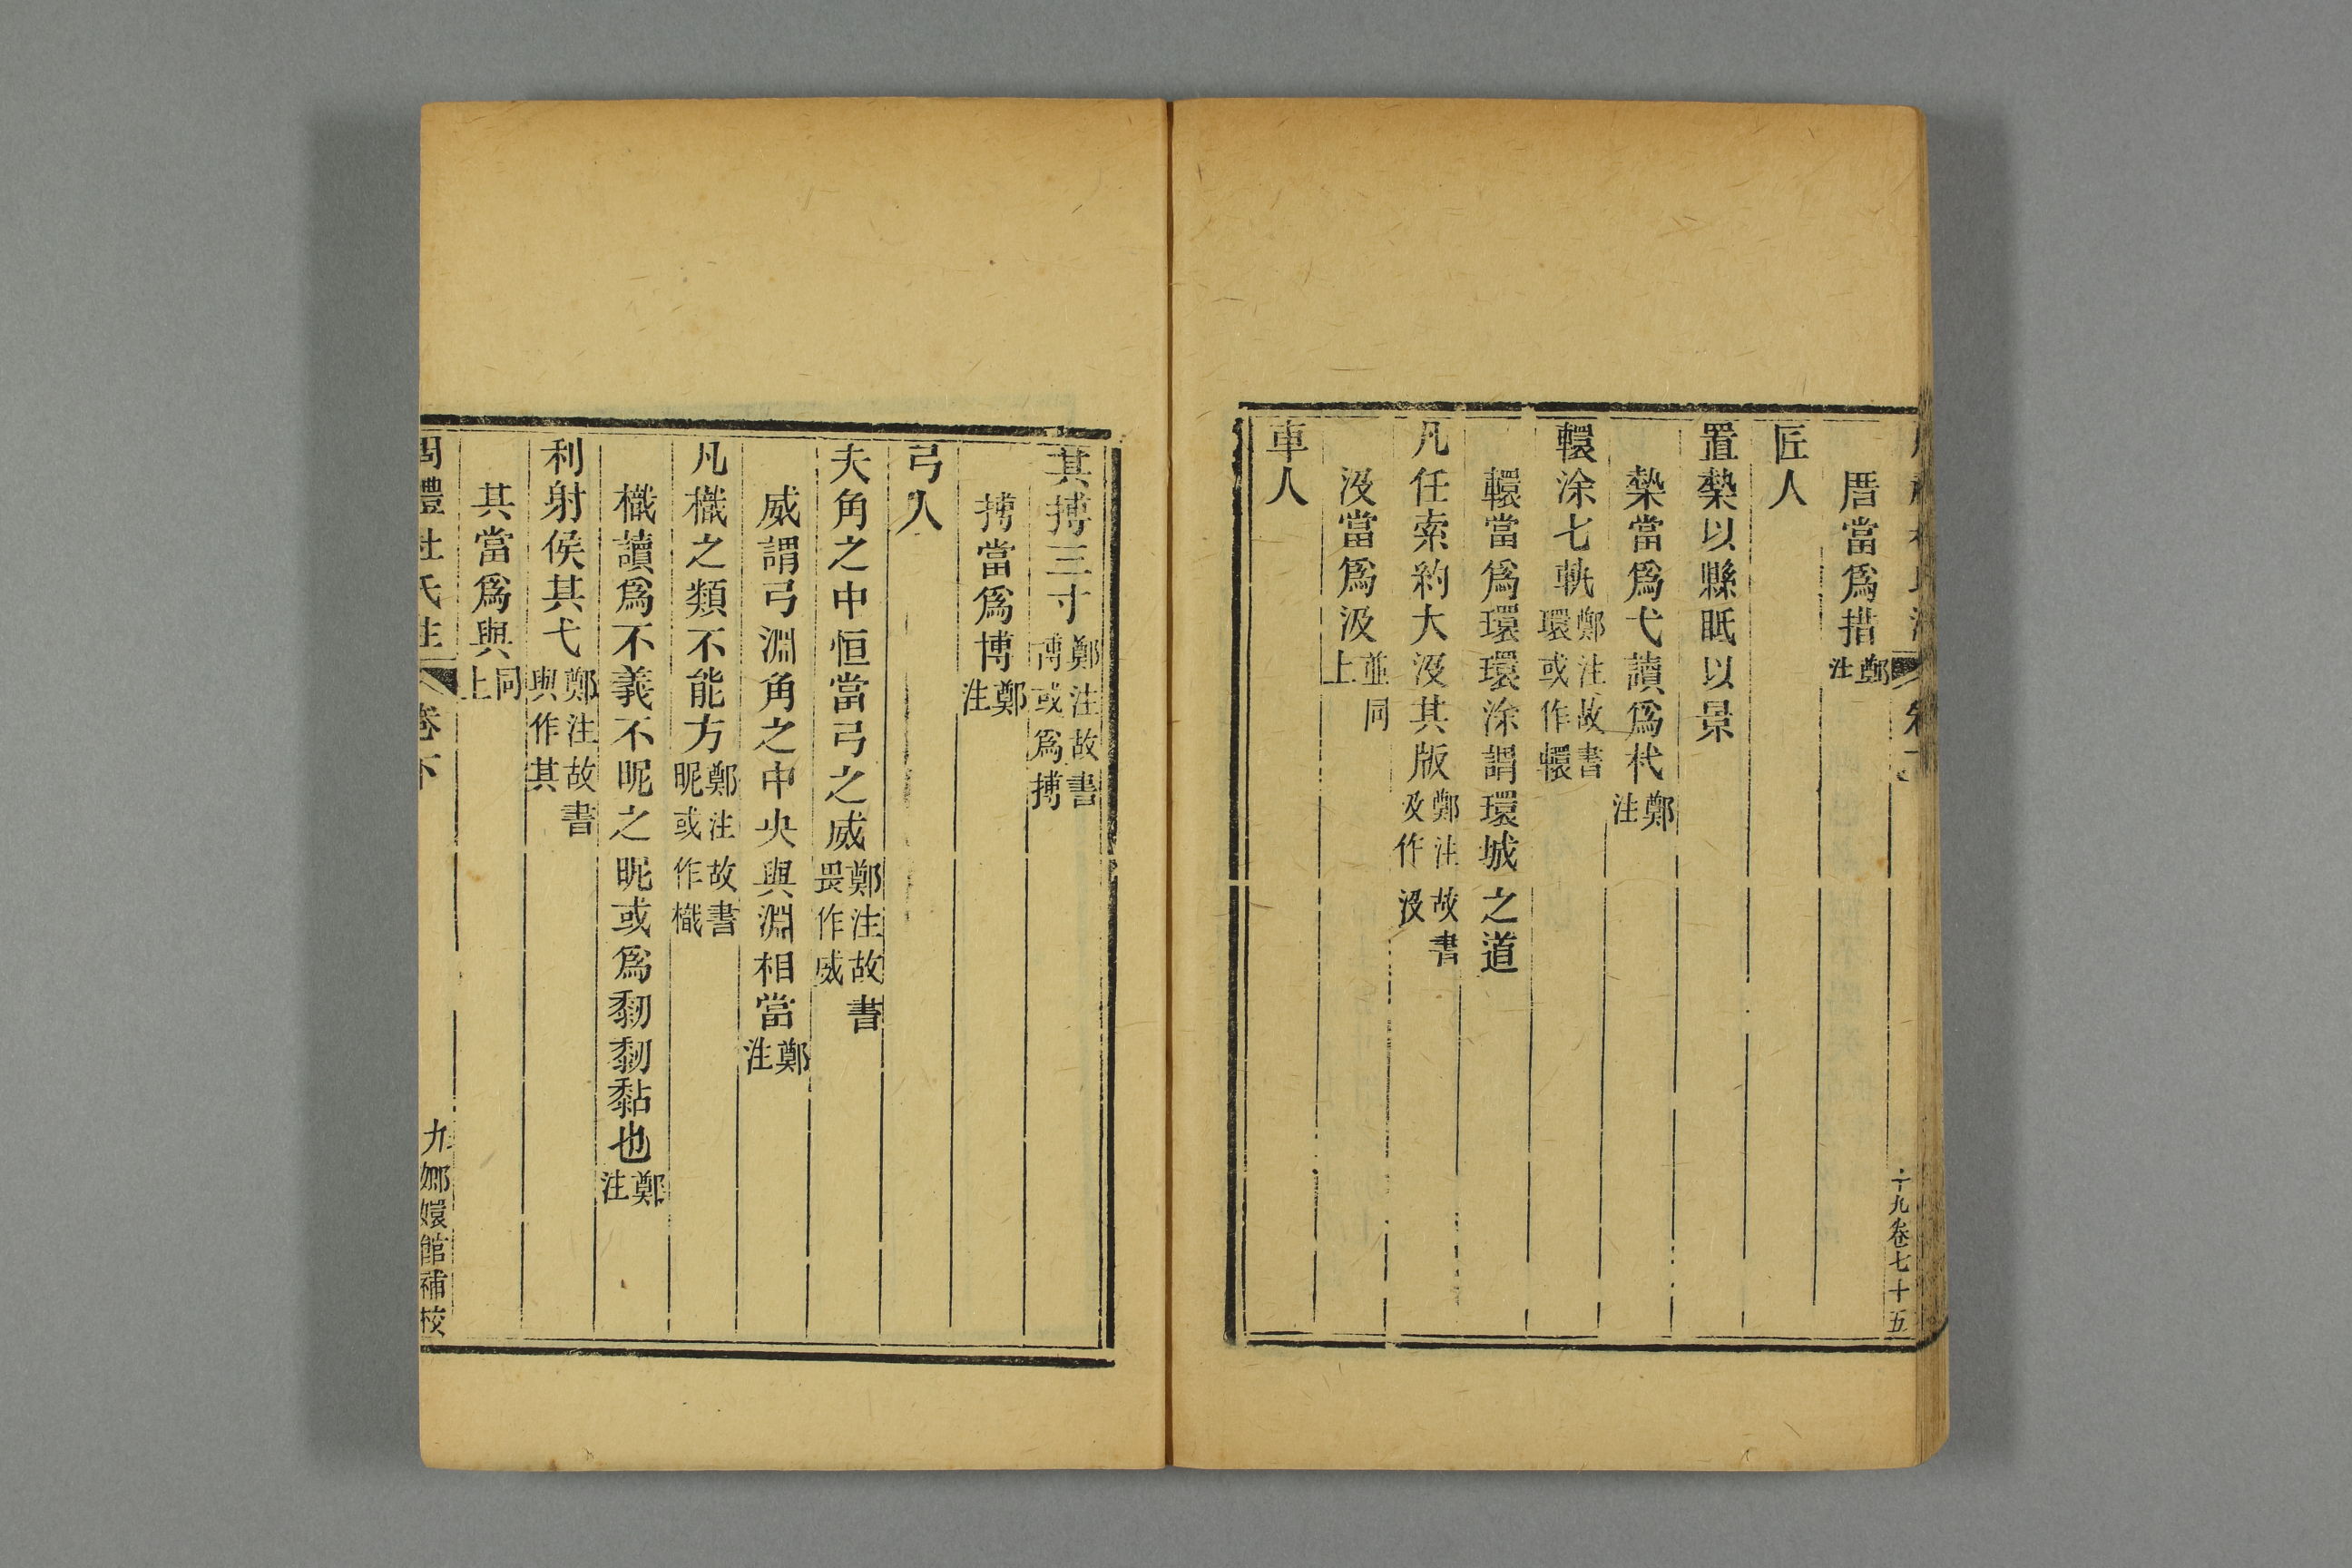 厝當爲措鄭注
匠人
置槷以縣眡以景
槷當爲弋讀爲杙鄭注
轘涂七軌鄭注故書環或作轘
轘當爲環環涂謂環城之道
凡任索約大汲其版鄭注故書及作汲
汲當爲汲並同上
車人
十九卷七十五
其摶三寸鄭注故書博或爲摶
摶當爲博鄭注
弓人
夫角之中恒當弓之威鄭注故書畏作威
威謂弓淵角之中央與淵相當鄭注
凡樴之類不能方鄭注故書昵或作樴
樴讀爲不義不昵之昵或爲䵒䵒黏也鄭注
利射侯其弋鄭注故書與作其
其當爲與同上
周禮杜氏注 卷下
九 嫏嬛館補校